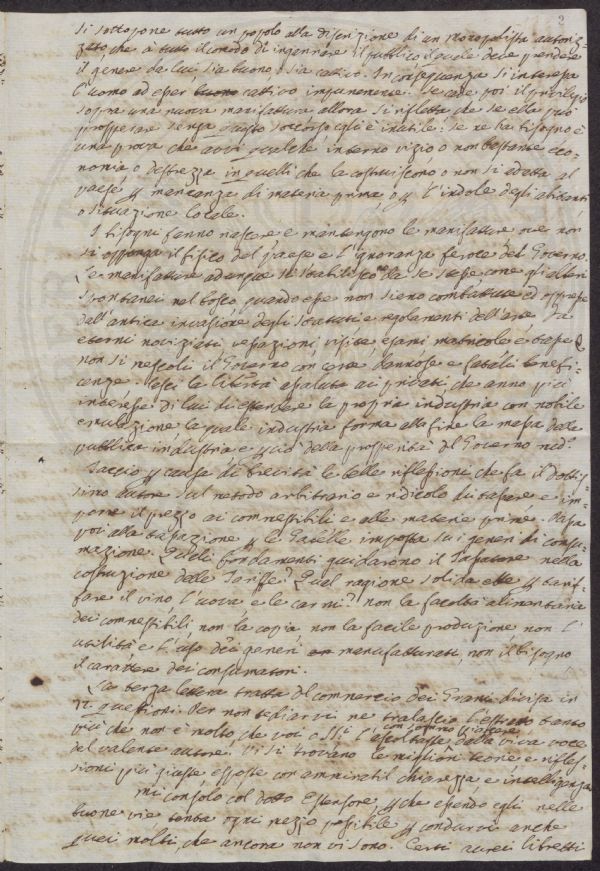 2
si sottopone tutto un popolo alla discrizione di un Monopolista autoriz-
zato, che a tutto il comodo di ingannare il pubblico, il quale deve prendere
il genere da lui, sia buono, sia cativo. In conseguenza si interessa
l'uomo ad esser buono cattivo impunemente. Se cade poi il privilegio
sopra una nuova manifattura allora si rifletta che se ella può
prosperare senza questo soccorso egli è inutile: se ne ha bisogno è
una prova che avvi qualche interno vizio, o non bastante eco-
nomia o destrezza in quelli che la costituiscono, o non si adatta al
paese p mancanza di materia prima o p l'indole degli abitanti
o situazione locale.
I bisogni fanno nascere e mantengono le manifatture ove non
si opponga il fisico del paese e l'ignoranza feroce del Governo.
Le manifatture adunque si stabilisco da se stesse come gli alberi
spontanei nel bosco quando esse non sieno combattute ed oppresse
dall'antica invasione degli statuti e regolamenti dell'arte da
eterni noviziati, vessazioni, visite, esami matricole e tasse e
non si mescoli il Governo con certe dannose e fatali benefi-
cenze. Lasci la libertà assoluta ai privati, che anno più
interesse di lui di estendere la propria industria con nobile
emulazione la quale industria forma alla fine la massa della
pubblica industria e p ciò della prosperità del Governo
Taccio p causa di brevità le belle riflessioni che fa il dottis-
simo autore sul metodo arbitrario e ridicolo di tassare e im-
porre il prezzo ai commestibili e alle materie prime. Passa
poi alla tassazione p le Gabelle imposta su i generi di consu-
mazione. Quali fondamenti guidarono il Tassatore nella
costruzione delle Tariffe? Qual ragione solida ebbe p tarif-
fare il vino l'uova e le carni? non la facoltà alimentaria
dei commestibili, non la copia non la facile produzione non l'
utilità e l'uso dei generi manufatturati, non il bisogno
il carattere dei consumatori.
La terza lettera tratta del commercio dei Grani divisa in
12. questioni. Per non tediarvi ne tralascio l'estratto tanto
più che non è molto che voi o SSri l'ascoltaste dalla viva voce
con sommo piacere
del valente autore. Vi si trovano le migliori teorie e rifles-
sioni più giuste esposte con ammirabil chiarezza e intelligenza
Mi consolo col dotto Estensore, p che essendo egli nelle
buone vie tenta ogni mezzo possibile p condurvi anche
quei molti, che ancora non vi sono. Certi aurei libretti